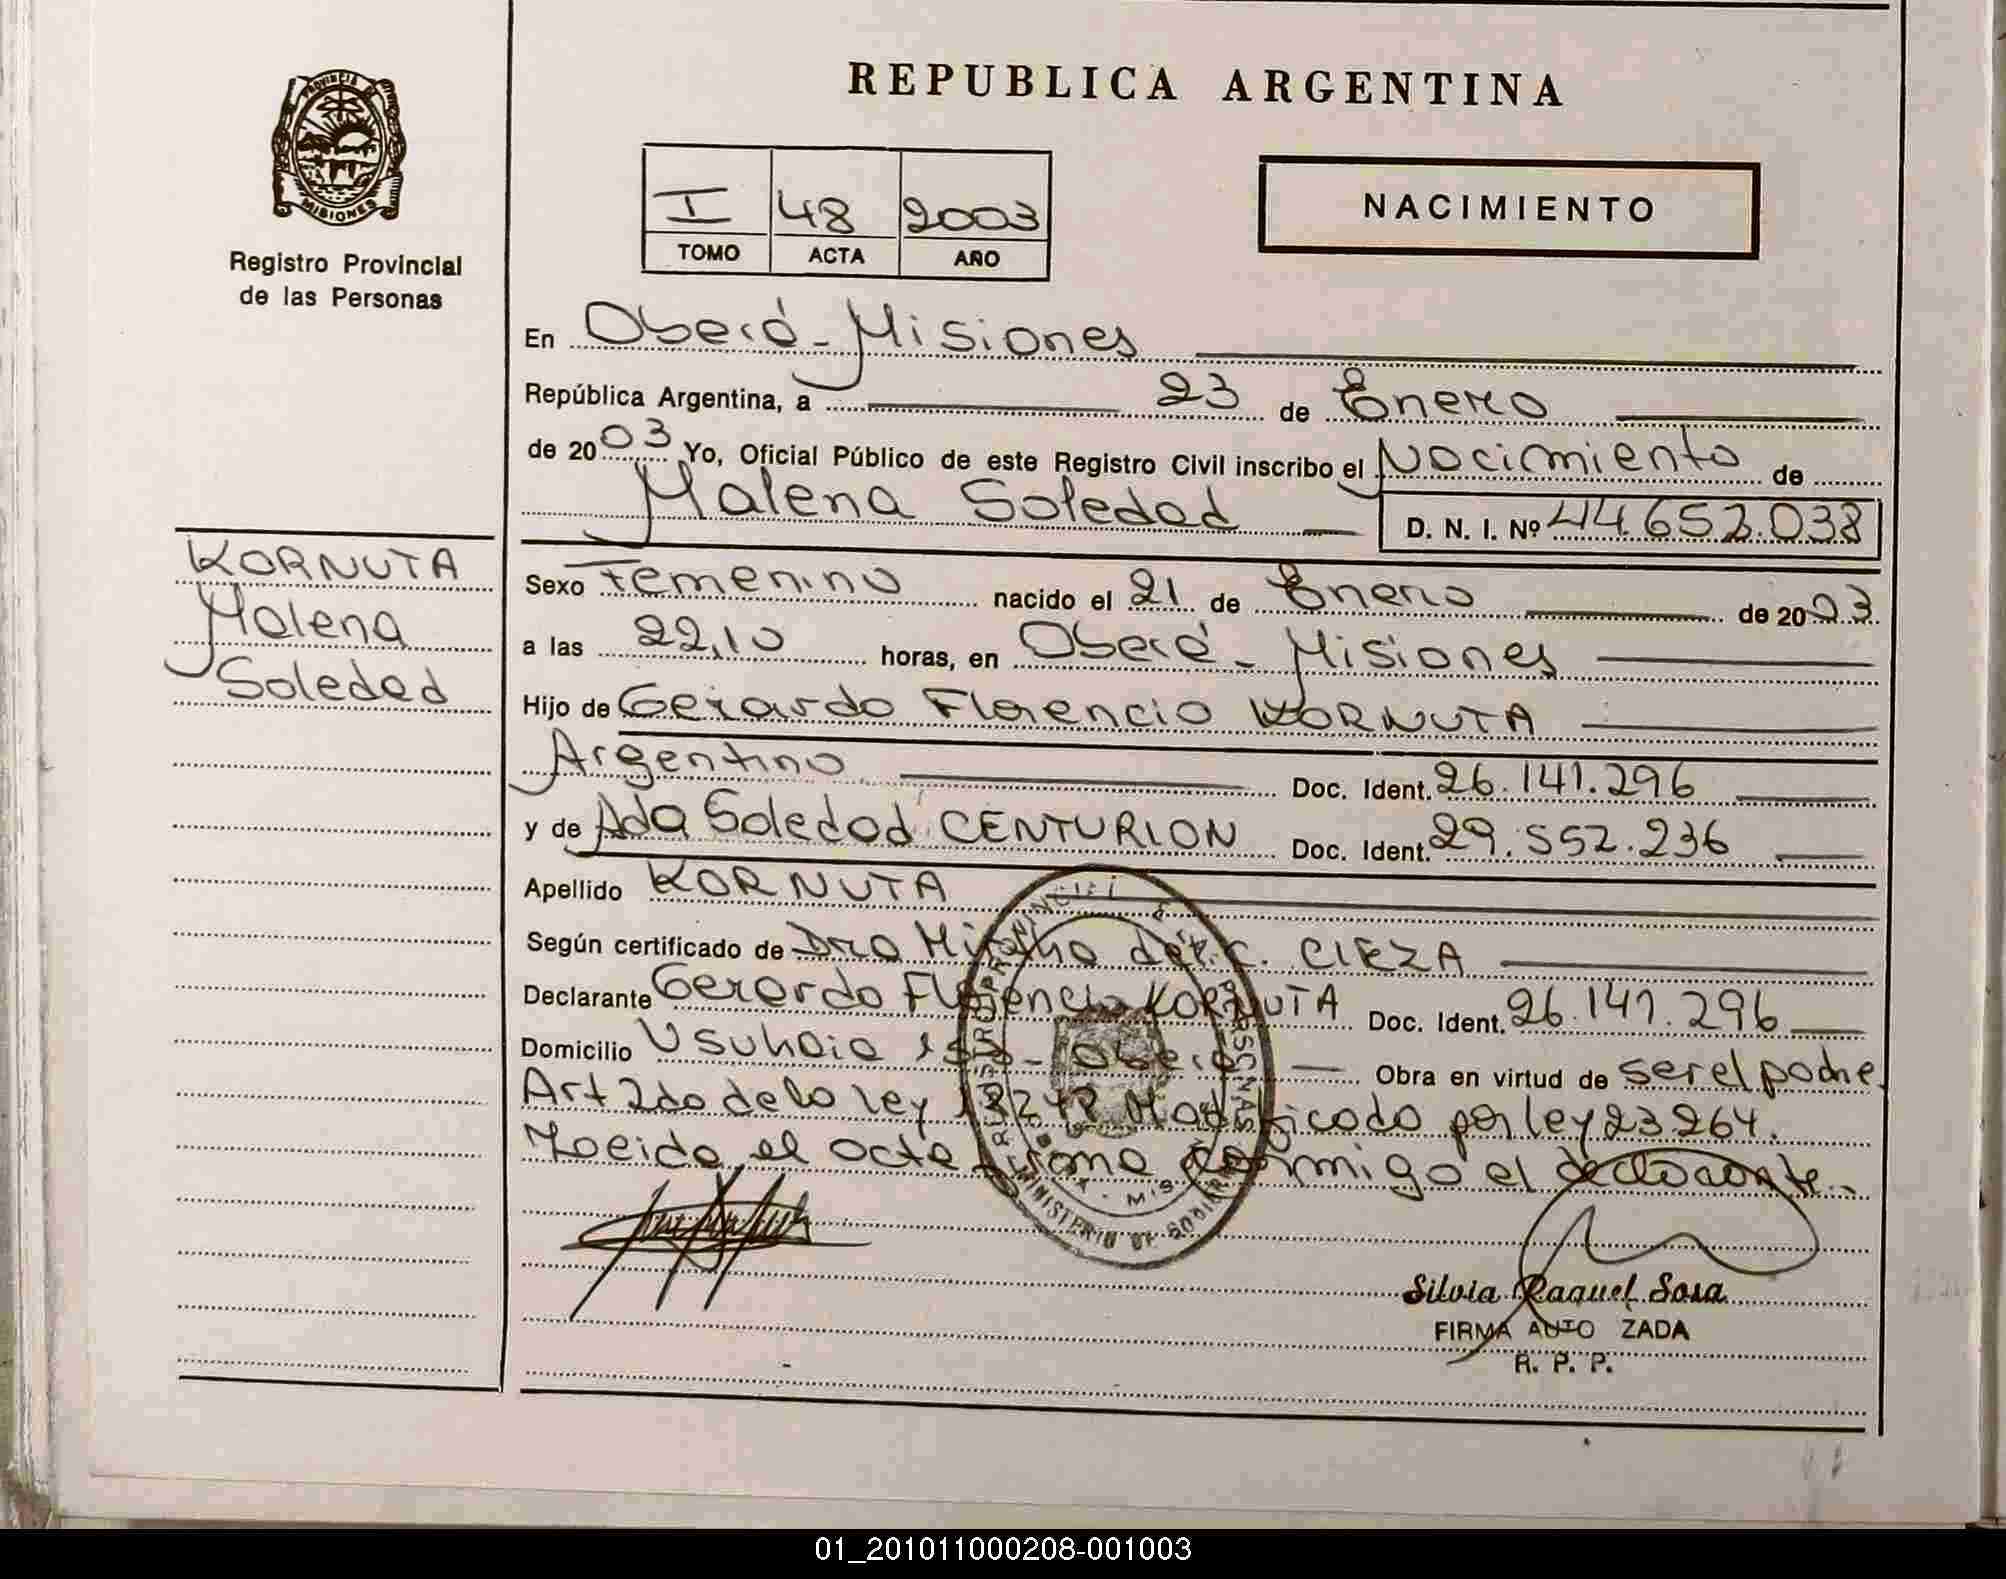 REPUBLICA ARGENTINA
PROVINCIA DE
MISIONES
Registro Provincial
de las Personas
I 48 2003
TOMO ACTA AÑO
NACIMIENTO
En Oberá - Misiones
República Argentina, a 23 de Enero
de 2003 Yo, Oficial Público de este Registro Civil inscribo el Nacimiento de
Malena Soledad D. N. I. Nº 44.653.038
KORNUTA
Malena
Soledad
Sexo Femenino nacido el 21 de Enero de 2003
a las 22,10 horas, en Oberá - Misiones
Hijo de Gerardo Florencio KORNUTA
Argentino Doc. Ident. 26.141.296
y de Ada Soledad CENTURION Doc. Ident. 29.552.236
Apellido KORNUTA
Según certificado de Dra Mirtha del C. CIEZA
Declarante Gerardo Florencio KORNUTA Doc. Ident. 26.141.296
Domicilio Usuhaia - Oberá Obra en virtud de ser el padre
Art 2do de la ley 18248 Modificado por ley 23264.
Leida el acta firma conmigo el declarante.
REGISTRO PROVINCIAL DE LAS PERSONAS
MINISTERIO DE GOBIERNO
Silvia Raquel Sosa
FIRMA AUTO ZADA
R. P. P.
01_201011000208-001003